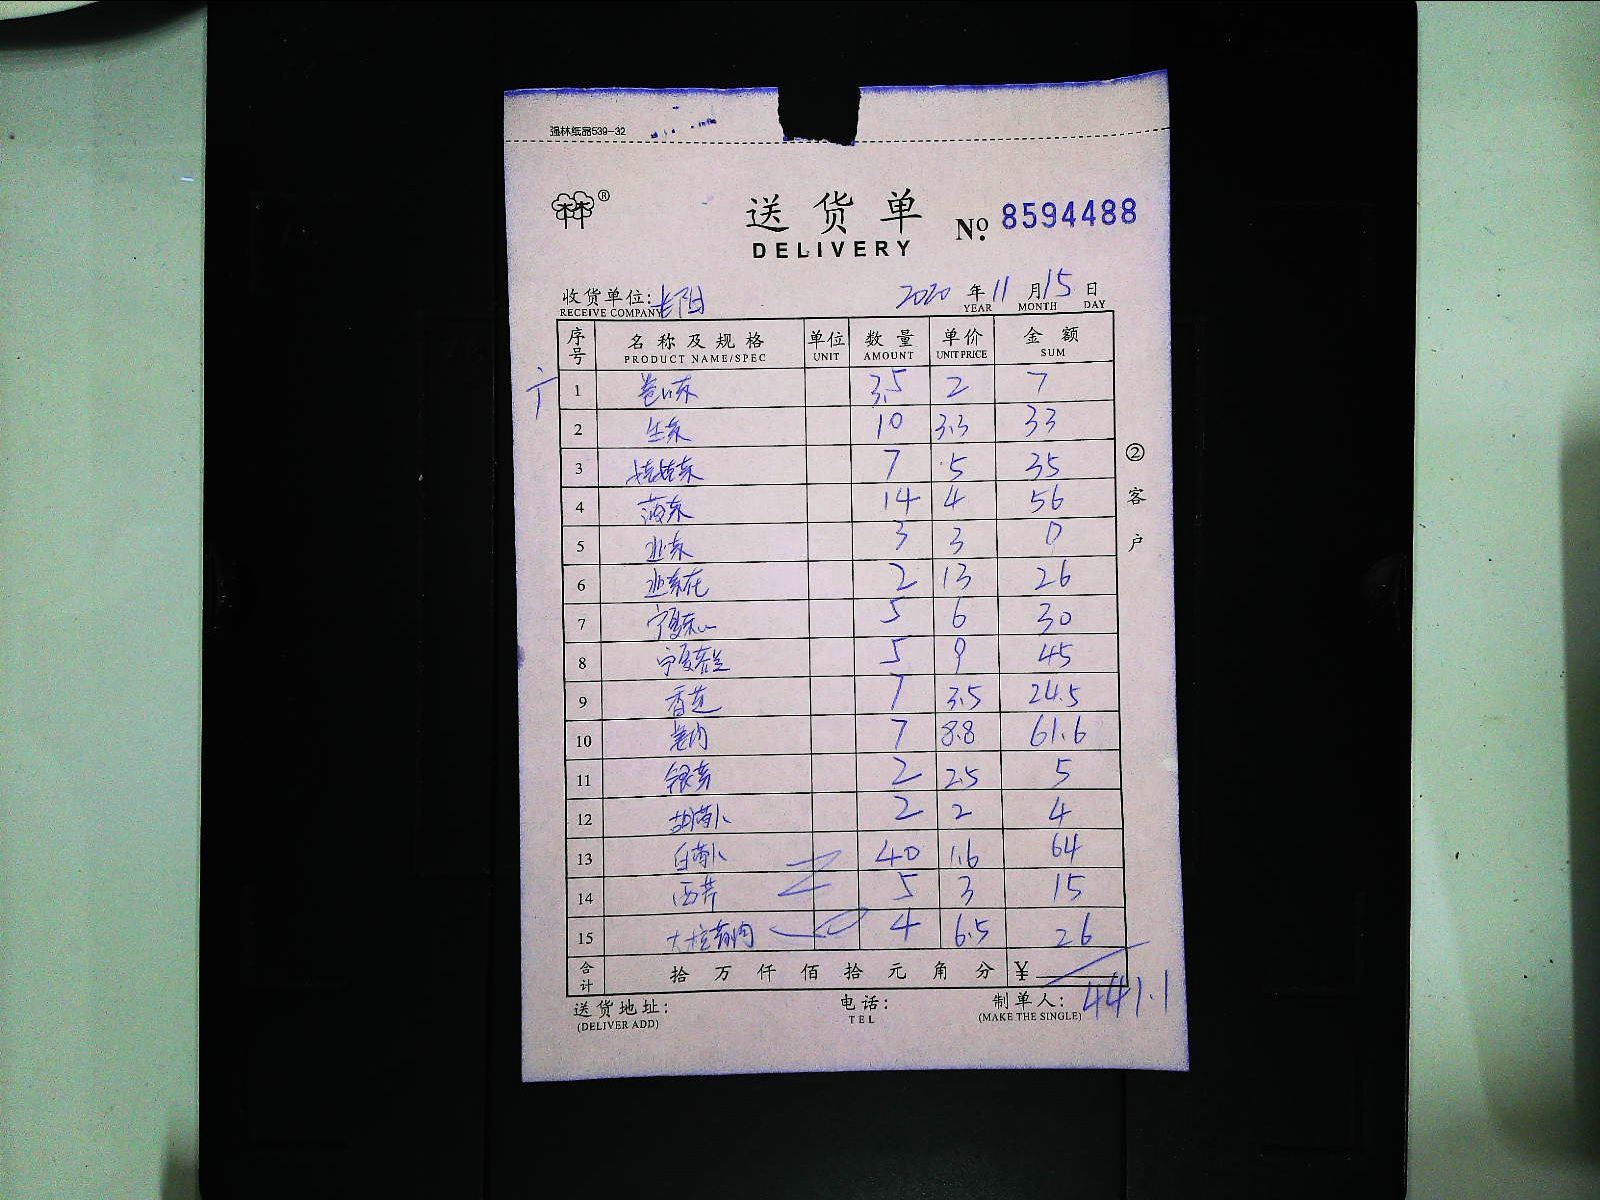 强林纸品539-32
林®
送货单
DELIVERY
No. 8594488
收货单位:
RECEIVE COMPANY
2020 年 11 月 15 日
YEAR MONTH DAY
序号 名称及规格 单位 数量 单价 金额
PRODUCT NAME/SPEC UNIT AMOUNT UNIT PRICE SUM
1 3.5 2 7
2 生菜 10 3.3 33
3 娃娃菜 7 5 35
4 菠菜 14 4 56
5 3 3 0
6 2 13 26
7 宁夏菜心 5 6 30
8 宁夏 5 9 45
9 香芝 7 3.5 24.5
10 7 8.8 61.6
11 银芽 2 2.5 5
12 胡萝卜 2 2 4
13 白萝卜 40 1.6 64
14 西芹 5 3 15
15 4 6.5 26
合计 拾万仟佰拾元角分 ¥ 441.1
② 客户
送货地址: 电话: 制单人:
(DELIVER ADD) TEL (MAKE THE SINGLE)